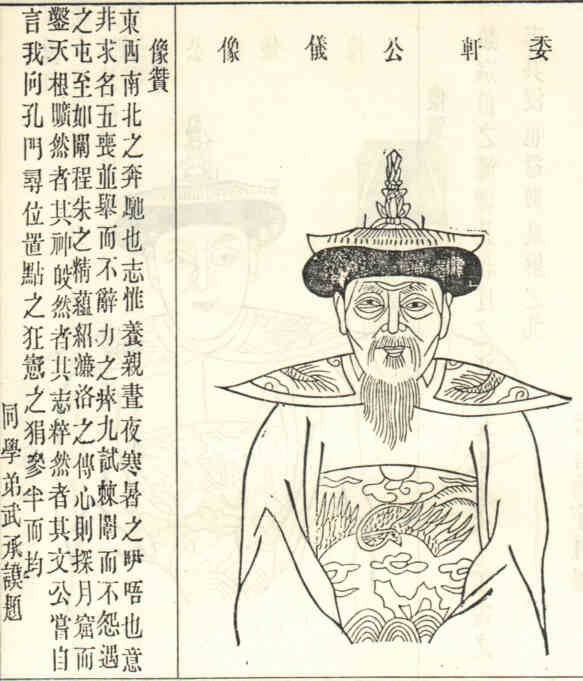 委軒公儀像
像讚
東西南北之奔馳也志惟養親晝夜寒暑之咿唔也意
非求名五喪並舉而不辭力之瘁九試棘闈而不怨遇
之屯至如闡程朱之精蘊紹濂洛之傳心則探月窟而
鑿天根曠然者其神皎然者其志粹然者其文公嘗自
言我向孔門尋位置點之狂憲之狷參半而均
同學弟武承謨題